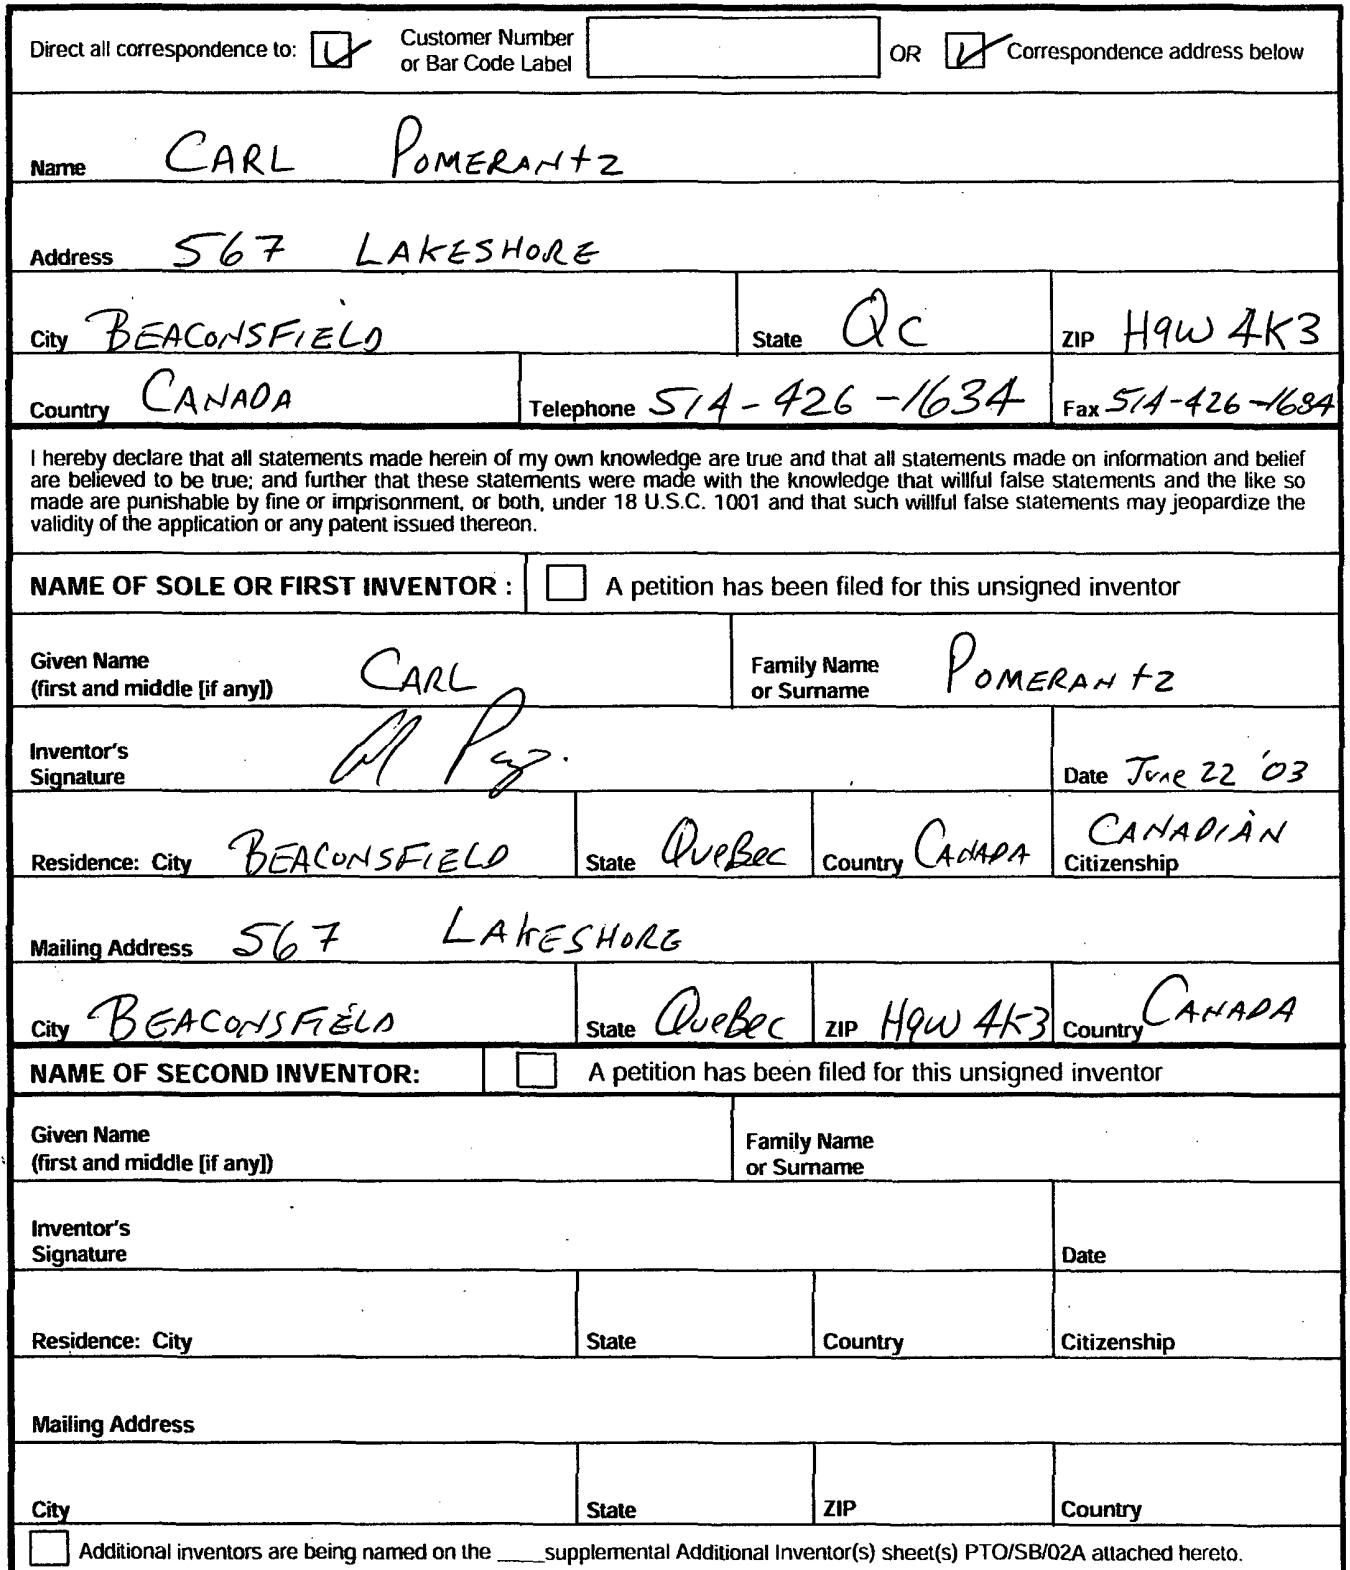 Direct all correspondence to: Customer Number or Bar Code Label OR Correspondence address below
Name CARL POMERANTZ
Address 567 LAKESHORE
City BEACONSFIELD State QC ZIP H9W 4K3
Country CANADA Telephone 514-426-1634 Fax 514-426-1684
I hereby declare that all statements made herein of my own knowledge are true and that all statements made on information and belief
are believed to be true; and further that these statements were made with the knowledge that willful false statements and the like so
made are punishable by fine or imprisonment, or both, under 18 U.S.C. 1001 and that such willful false statements may jeopardize the
validity of the application or any patent issued thereon.
NAME OF SOLE OR FIRST INVENTOR : A petition has been filed for this unsigned inventor
Given Name
(first and middle [if any]) CARL
Family Name
or Surname POMERANTZ
Inventor's
Signature
Date June 22 '03
Residence: City BEACONSFIELD State QueBec Country CANADA Citizenship CANADIAN
Mailing Address 567 LAKESHORE
City BEACONSFIELD State QueBec ZIP H9W 4K3 Country CANADA
NAME OF SECOND INVENTOR: A petition has been filed for this unsigned inventor
Given Name
(first and middle [if any])
Family Name
or Surname
Inventor's
Signature
Date
Residence: City State Country Citizenship
Mailing Address
City State ZIP Country
Additional inventors are being named on the ____supplemental Additional Inventor(s) sheet(s) PTO/SB/02A attached hereto.